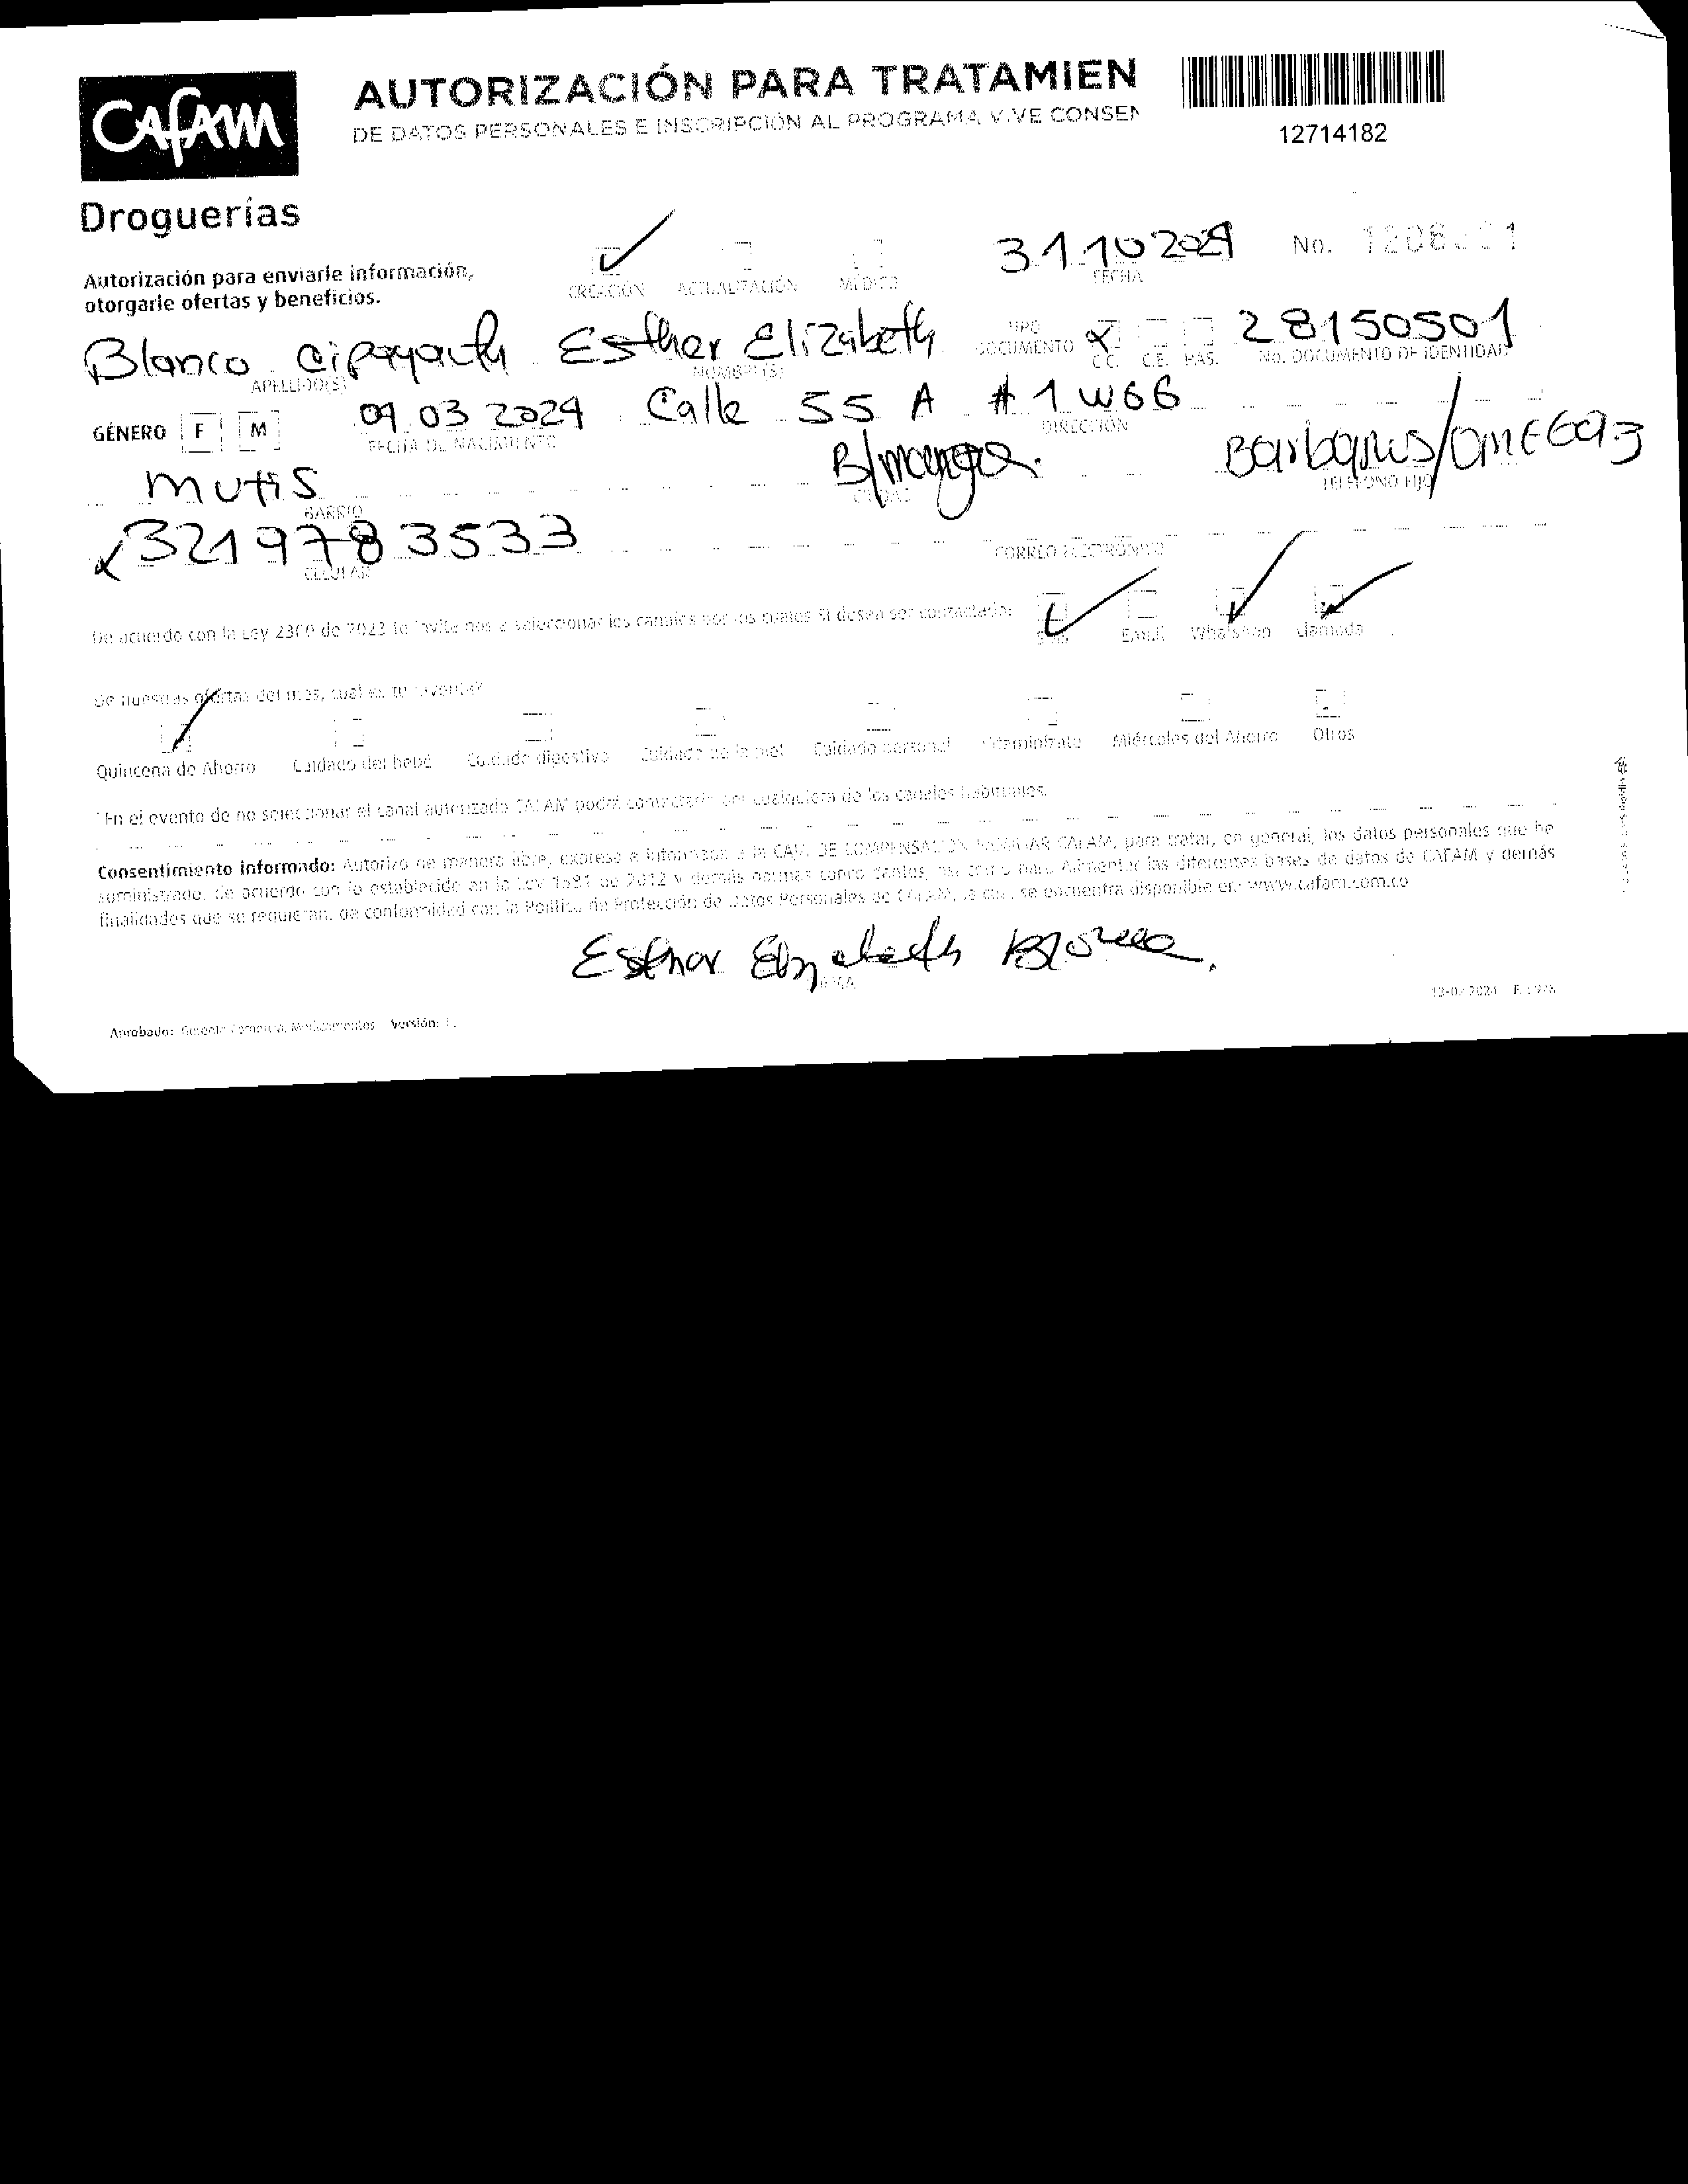 CAFAM
AUTORIZACIÓN PARA TRATAMIEN
DE DATOS PERSONALES E INSCRIPCIÓN AL PROGRAMA VIVE CONSEN
12714182
Droguerías
Autorización para enviarle información,
otorgarle ofertas y beneficios.
CREACIÓN ACTUALIZACIÓN MÉDICO
31 10 2024 No.
FECHA
Blanco Esther Elizabeth TIPO DOCUMENTO X C.C. C.E. PAS. 28150501
APELLIDO(S) NOMBRE(S) No. DOCUMENTO DE IDENTIDAD
GÉNERO F M 09 03 2024 Calle 55 A # 1 W66
FECHA DE NACIMIENTO DIRECCIÓN
mutis B/manga.
BARRIO CIUDAD TELÉFONO FIJO
3219783533
CELULAR CORREO ELECTRÓNICO
De acuerdo con la Ley 2300 de 2023 te invitamos a seleccionar los canales por los cuales si desea ser contactado:
Email WhatsApp Llamada
De nuestras ofertas del mes, cual es tu favorita?
Quincena de Ahorro Cuidado del bebé Cuidado digestivo Cuidado de la piel Cuidado personal Vitamínizate Miércoles del Ahorro Otros
*En el evento de no seleccionar el canal autorizado CAFAM podrá contactarlo por cualquiera de los canales habituales.
Consentimiento informado: Autorizo de manera libre, expresa e informada a la CAJA DE COMPENSACIÓN FAMILIAR CAFAM, para tratar, en general, los datos personales que he
suministrado, de acuerdo con lo establecido en la Ley 1581 de 2012 y demás normas concordantes, así como para Alimentar las diferentes bases de datos de CAFAM y demás
finalidades que se requieran, de conformidad con la Política de Protección de Datos Personales de CAFAM, la cual se encuentra disponible en: www.cafam.com.co
Esther Elizabeth
FIRMA
Aprobado: Versión: